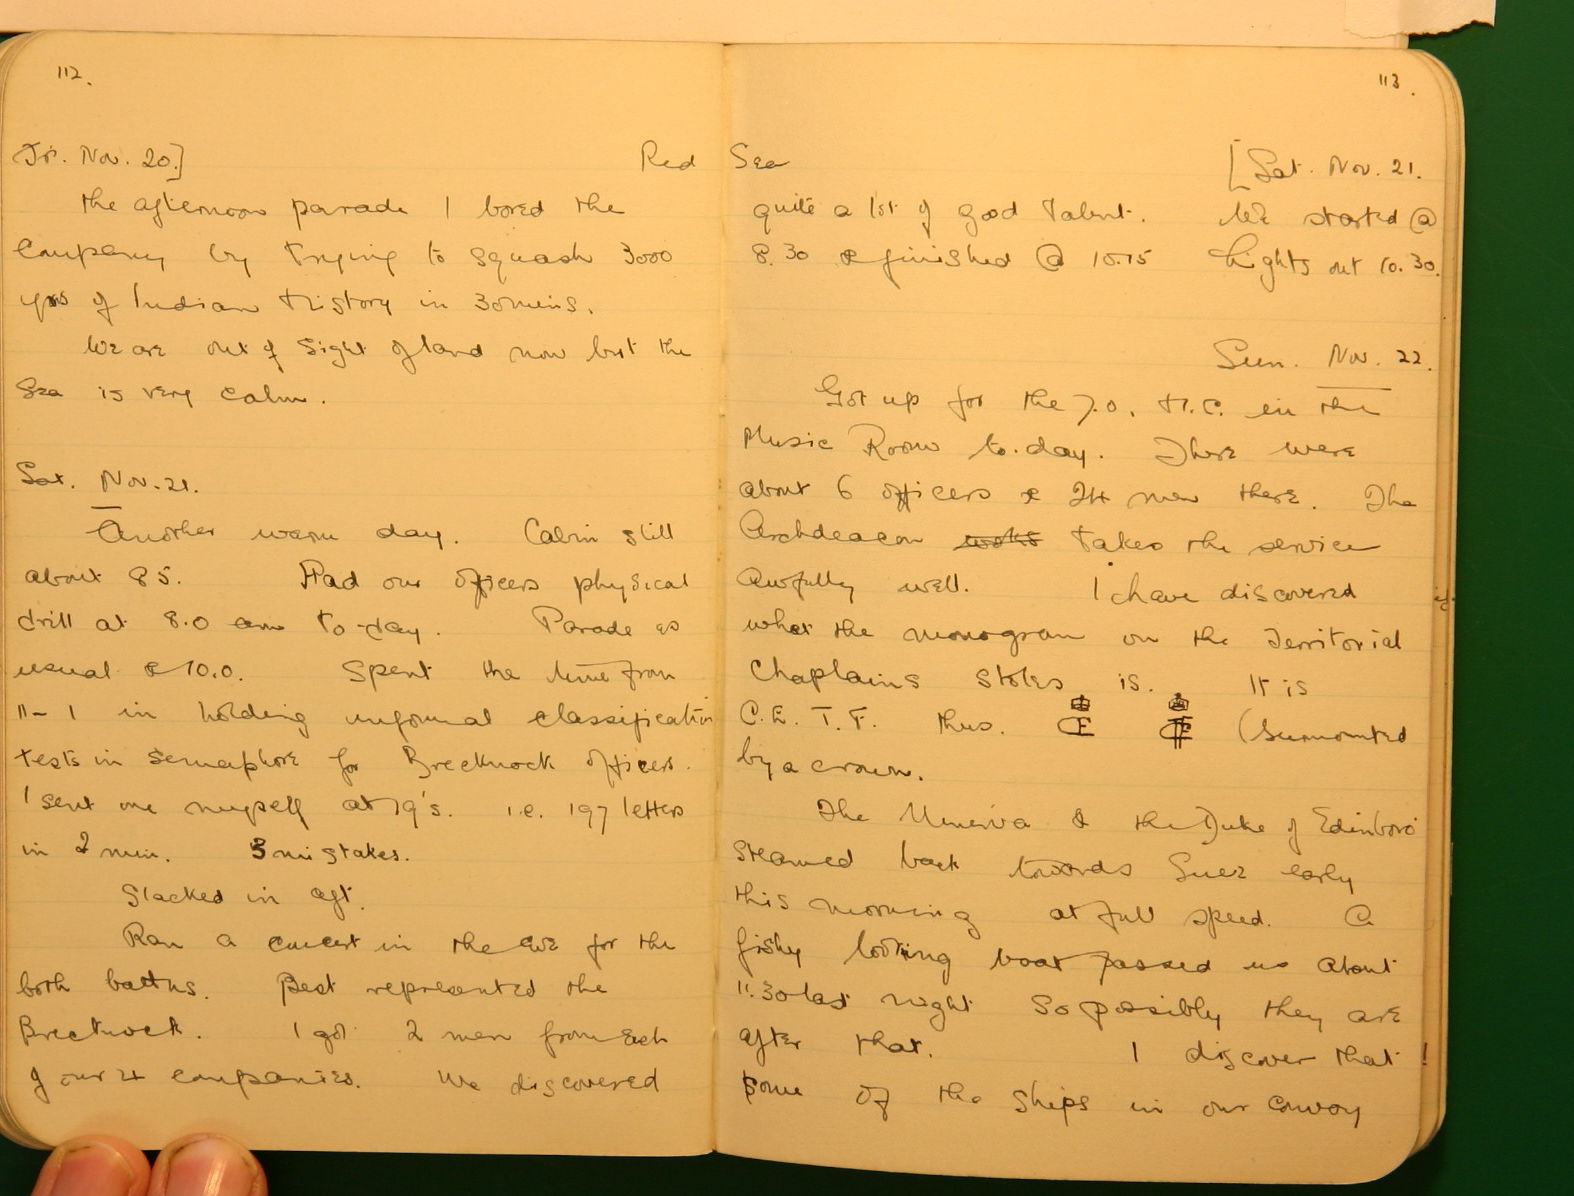 112.
Fri. Nov. 20.] Red
the afternoon parade I bored the
company by trying to squash 3000
yrs of Indian History in 30 mins.
We are out of sight of land now but the
Sea is very calm.
Sat. Nov. 21.
Another warm day. Cabin still
about 85. Had our officers physical
drill at 8.0 am to-day. Parade as
usual @ 10.0. Spent the time from
11 - 1 in holding informal classification
tests in semaphore for Brecknock officers.
I sent one myself at 19's. i.e. 197 letters
in 2 min. 3 mistakes.
Slacked in aft.
Ran a concert in the eve for the
both battns. Best represented the
Brecknock. I got 2 men from each
of our 4 companies. We discovered
113.
Sea [Sat. Nov. 21.
quite a lot of good talent. We started @
8.30 & finished @ 10.15 Lights out 10.30.
Sun. Nov. 22.
Got up for the 7.0. H.C. in the
Music Room to-day. There were
about 6 officers & 24 men there. The
Archdeacon takes the service
awfully well. I have discovered
what the monogram on the Territorial
Chaplains stoles is. It is
C.E.T.F. thus. (surmounted
by a crown.
The Minerva & the Duke of Edinboro'
steamed back towards Suez early
this morning at full speed. A
fishy looking boat passed us about
11.30 last night so possibly they are
after that. I discover that
some of the ships in our convoy